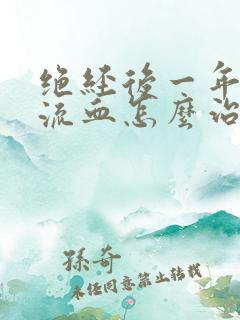 绝经後一年
流血怎麼治
孫奇
未经同意禁止转载